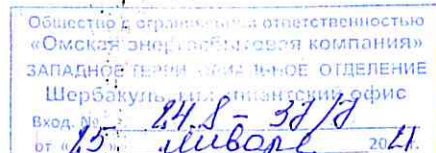 Общество с ограниченной ответственностью
«Омская энергосбытовая компания»
ЗАПАДНОЕ ТЕРРИТОРИАЛЬНОЕ ОТДЕЛЕНИЕ
Шербакульский клиентский офис
Вход. №
от «15 января 2021 г.